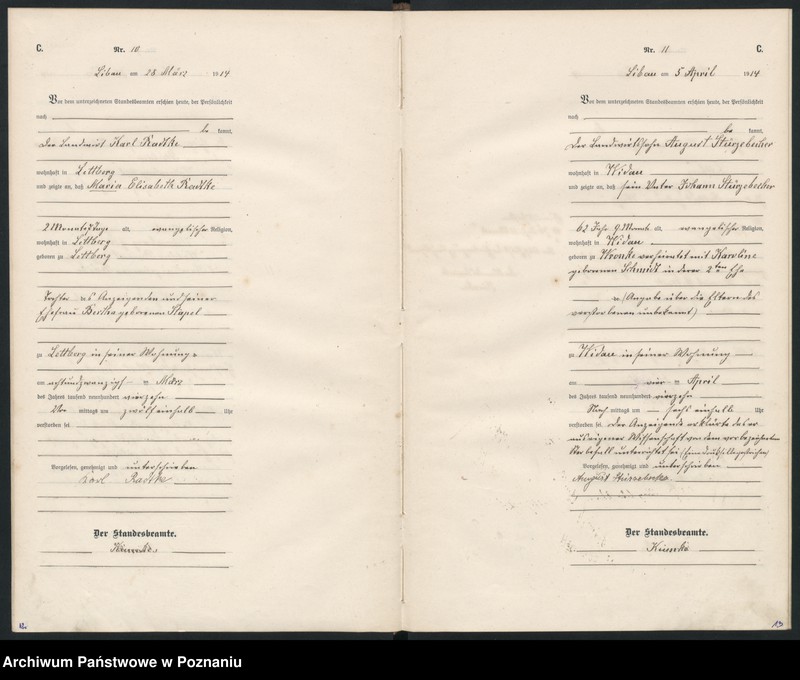 C.
Nr. 10
Libau am 28 März 1914
Vor dem unterzeichneten Standesbeamten erschien heute, der Persönlichkeit
nach
be kannt,
Der Landwirt Karl Radtke
wohnhaft in Lettberg
und zeigte an, daß Maria Elisabeth Radtke
2 Monate alt, evangelischer Religion,
wohnhaft in Lettberg
geboren zu Lettberg
Tochter des Anzeigenden und seiner
Ehefrau Bertha geborenen Stapel
zu Lettberg in seiner Wohnung
am achtundzwanzigst en März
des Jahres tausend neunhundert vierzehn
Vor mittags um zwölf einhalb Uhr
verstorben sei
Vorgelesen, genehmigt und unterschrieben
Karl Radtke
Der Standesbeamte.
12.
Nr. 11
C.
Libau am 5 April 1914
Vor dem unterzeichneten Standesbeamten erschien heute, der Persönlichkeit
nach
be kannt,
Der Landwirtssohn August Stürzebecher
wohnhaft in Widau
und zeigte an, daß sein Vater Johann Stürzebecher
62 Jahr 9 Monate alt, evangelischer Religion,
wohnhaft in Widau
geboren zu Wronke verheiratet mit Karoline
geborenen Schmidt in derer 2ten Ehe
(Angabe über die Eltern des
verstorbenen unbekannt)
zu Widau in seiner Wohnung
am vier en April
des Jahres tausend neunhundert vierzehn
Nach mittags um sechs einhalb Uhr
verstorben sei. Der Anzeigende erklärte das er
aus eigener Wissenschaft von dem vorbezeichneten
Sterbefall unterrichtet sei
Vorgelesen, genehmigt und unterschrieben
August Stürzebecher
Der Standesbeamte.
13
Archiwum Państwowe w Poznaniu